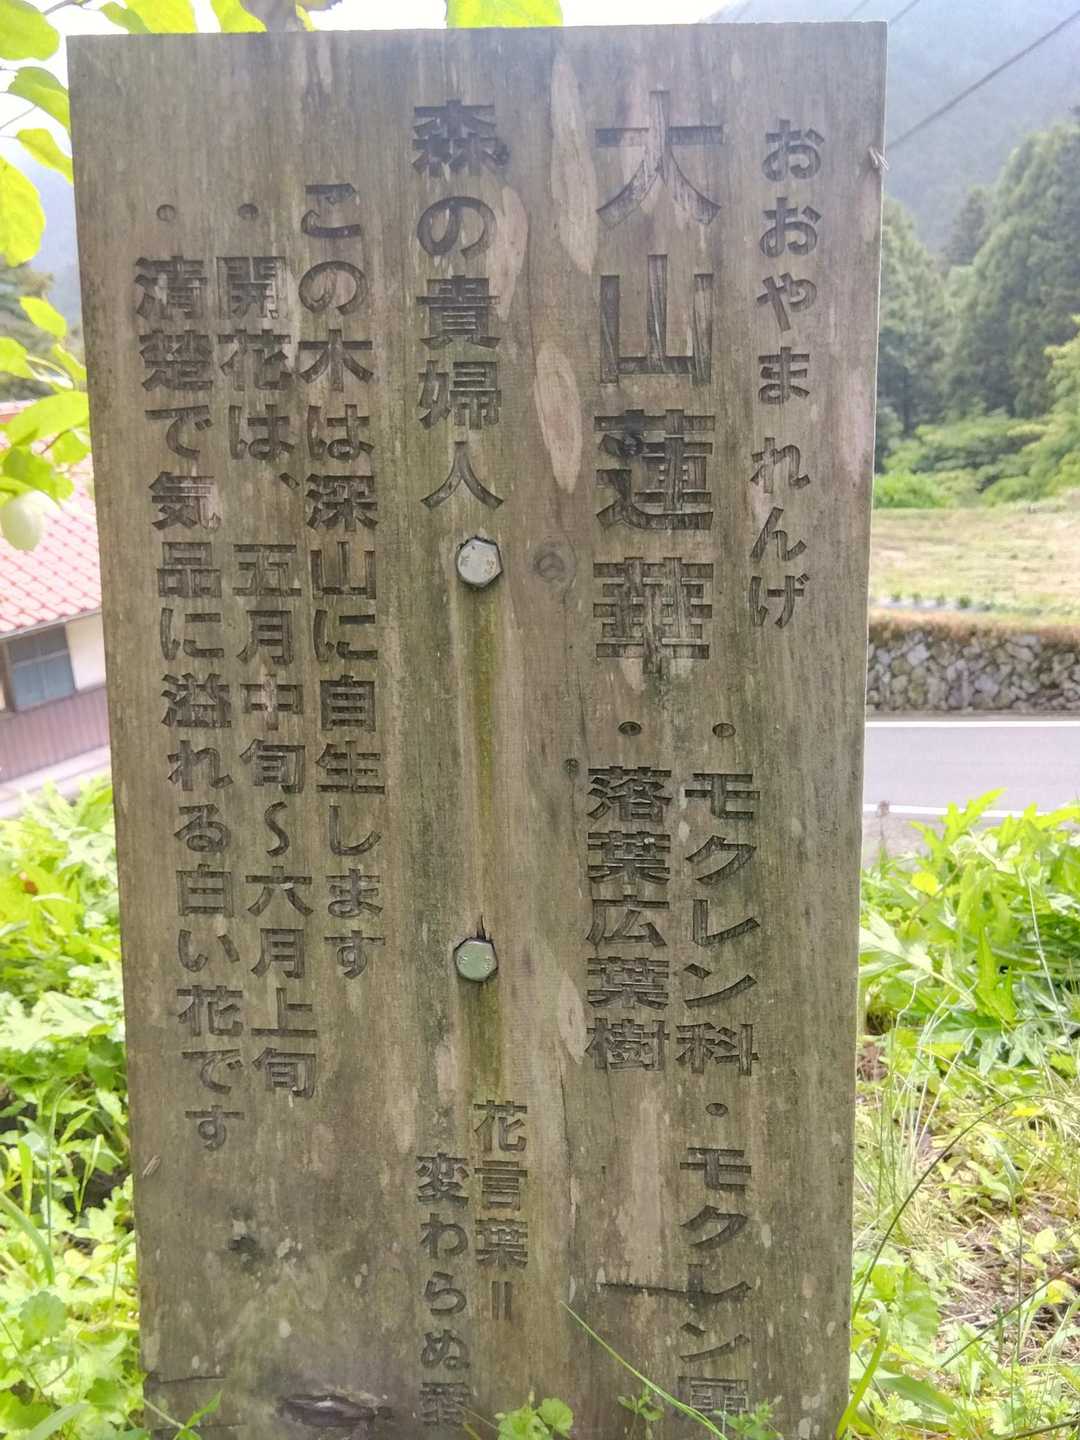 おおやまれんげ
大山蓮華
・モクレン科・モクレン属
・落葉広葉樹
森の貴婦人
花言葉=
変わらぬ愛
この木は深山に自生します
・開花は、五月中旬~六月上旬
・清楚で気品に溢れる白い花です